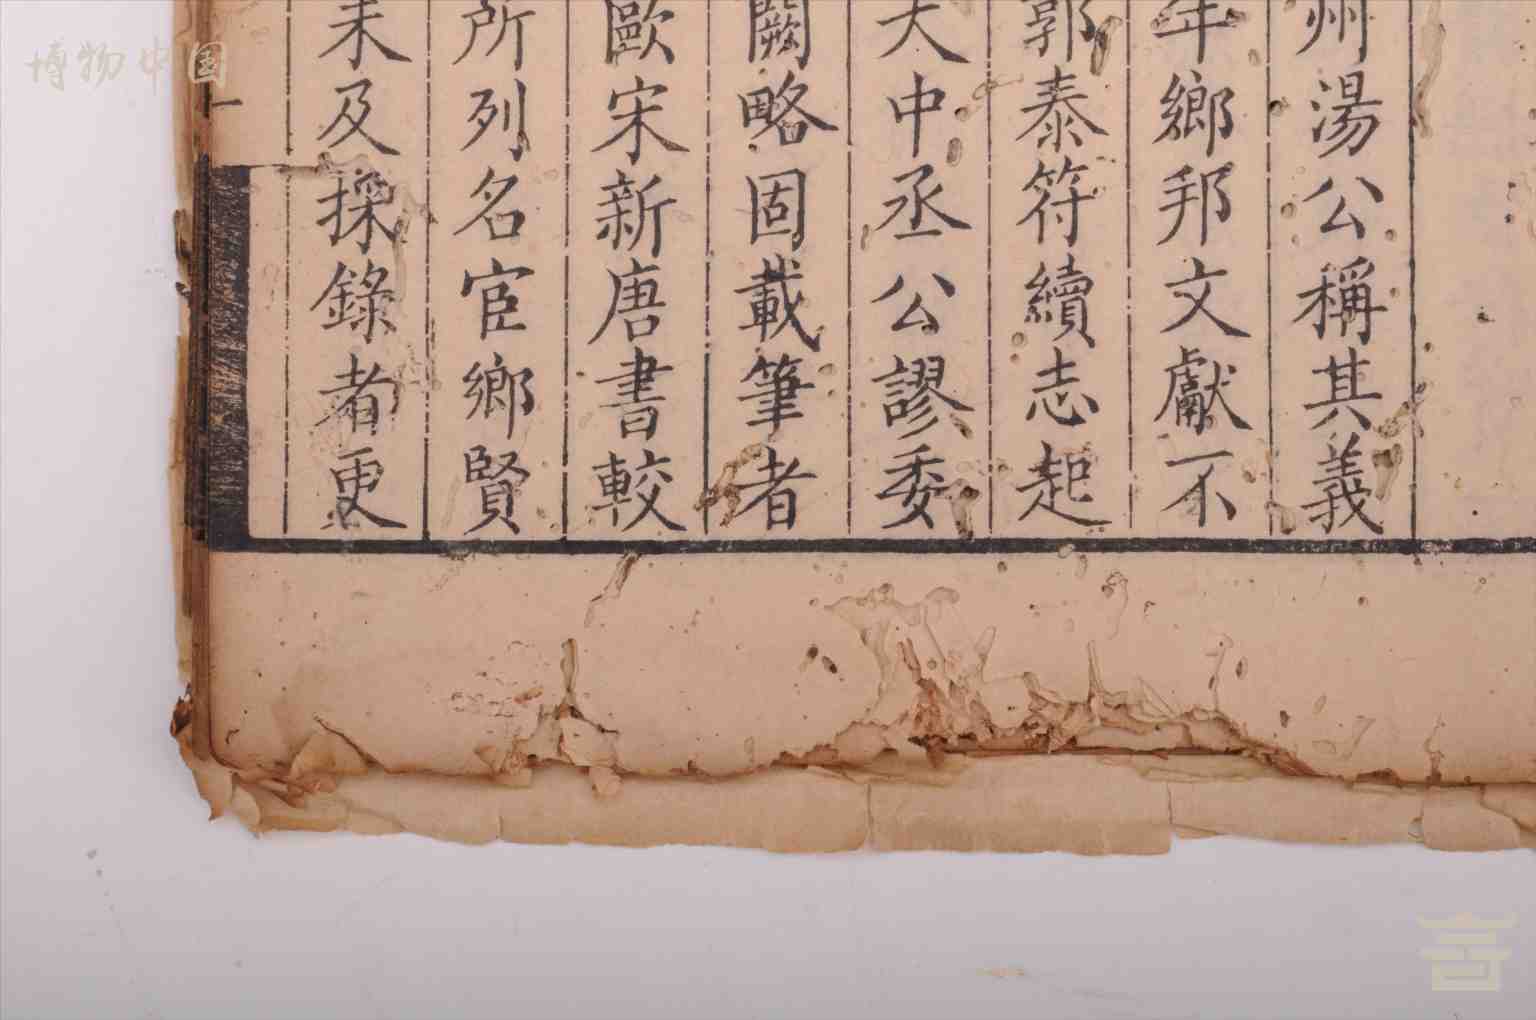 州湯公稱其義
年鄉邦文獻不
郭泰符續志起
大中丞公謬委
闕略固載筆者
歐宋新唐書較
所列名宦鄉賢
未及採錄者更
博物中国